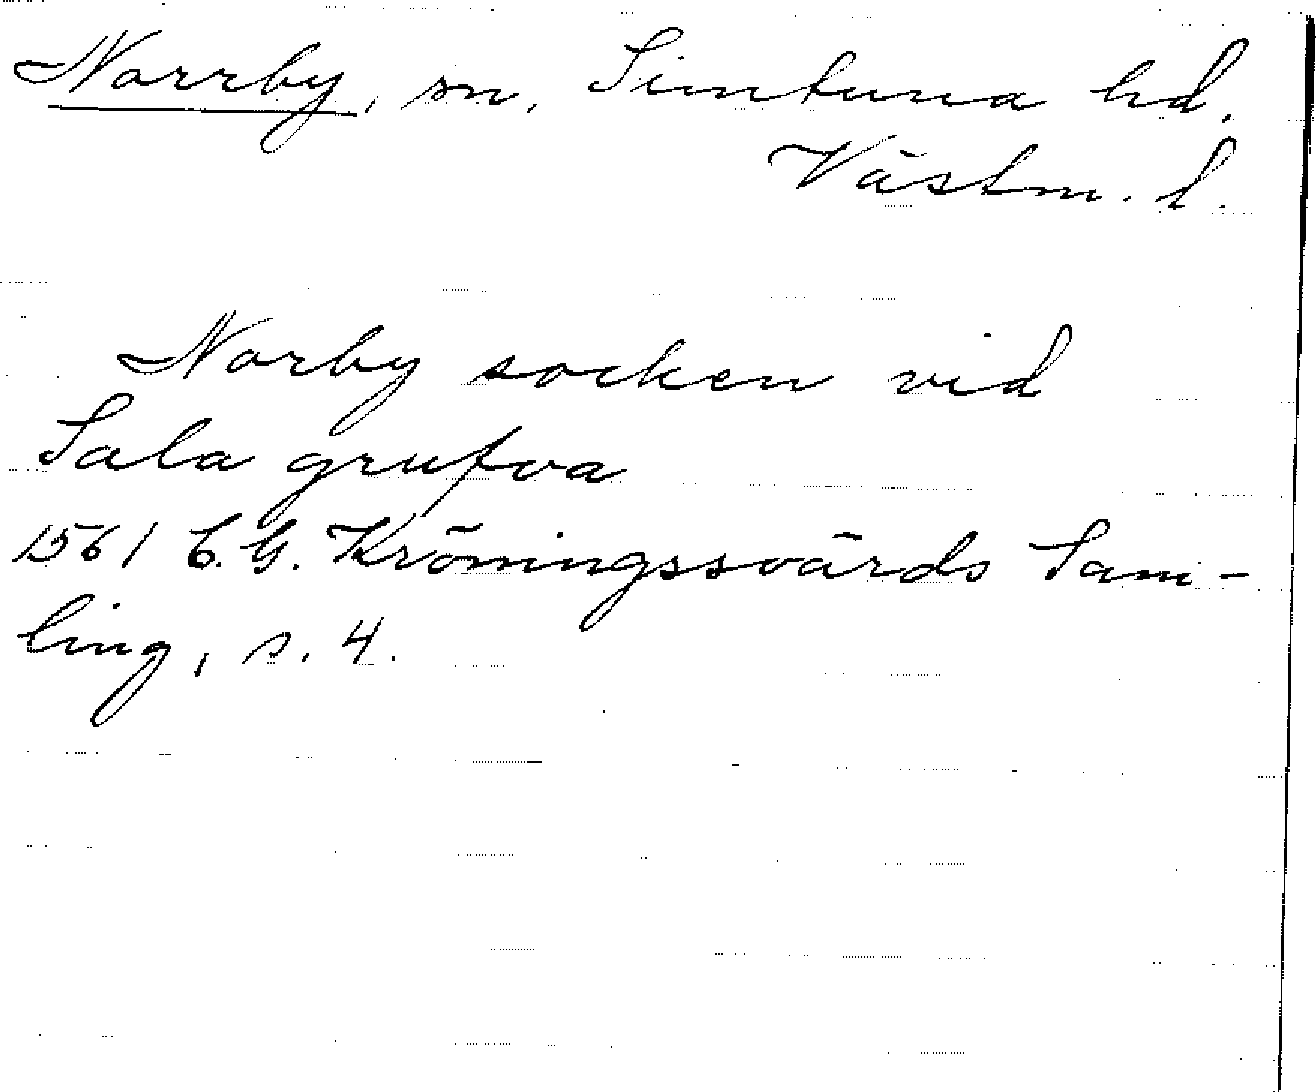 Norrby, sn, Simtuna hd.
Västm. l.
Norby socken vid
Sala grufva
1561 C. G. Kröningssvärds Sam-
ling, s. 4.